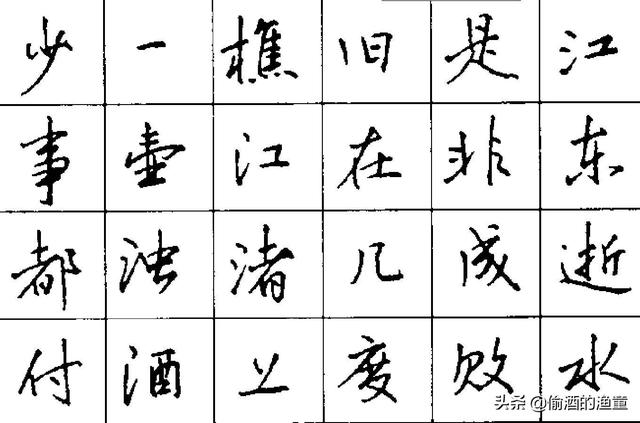 江东逝水
是非成败
旧在几度
樵江渚上
一壶浊酒
少事都付
头条 @偷酒的渔董